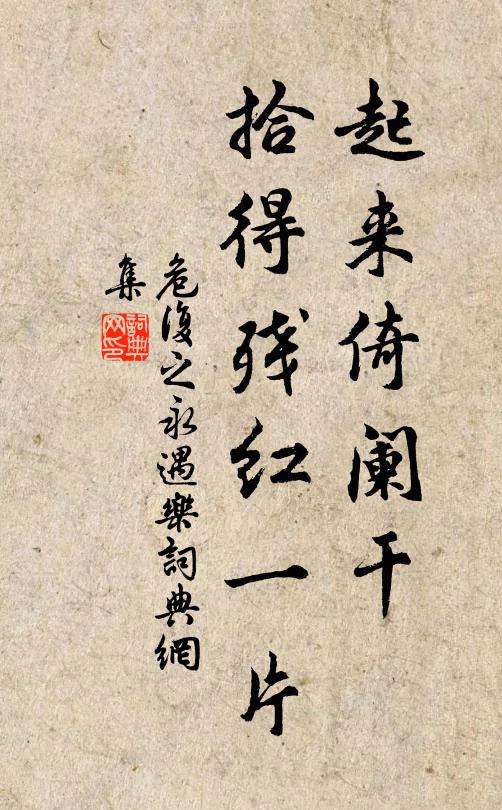 起来倚阑干
拾得残红一片
危復之永遇樂詞典網
集
詞典
网印